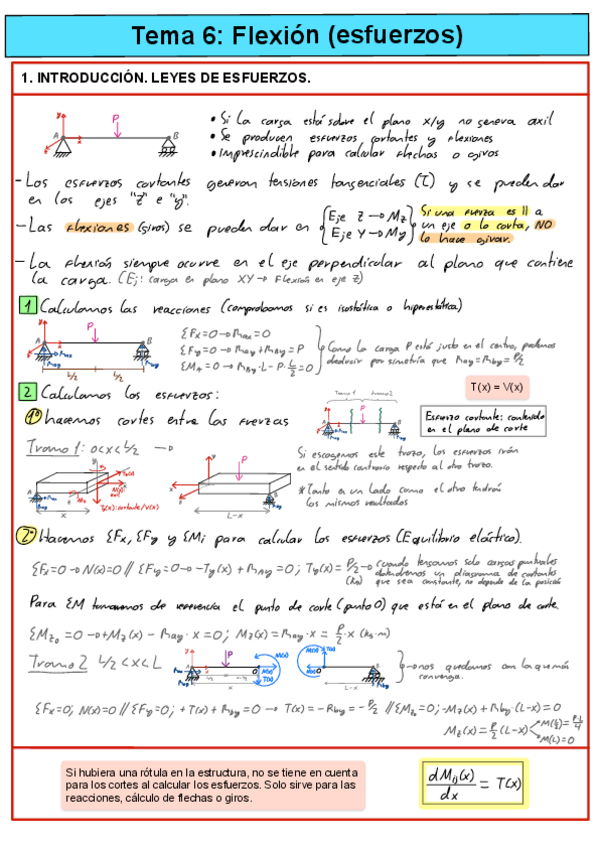 Tema 6: Flexión (esfuerzos)
1. INTRODUCCIÓN. LEYES DE ESFUERZOS.
• Si la carga está sobre el plano x/y no genera axil
• Se producen esfuerzos cortantes y flexiones
• Imprescindible para calcular flechas o giros
P
A
B
- Los esfuerzos cortantes generan tensiones tangenciales (τ) y se pueden dar
en los ejes "z" e "y".
- Las flexiones (giros) se pueden dar en
Eje Z → Mz
Eje Y → My
Si una fuerza es || a
un eje o lo corta, NO
lo hace girar.
- La flexión siempre ocurre en el eje perpendicular al plano que contiene
la carga. (Ej: carga en plano XY → Flexión en eje z)
1 Calculamos las reacciones (comprobamos si es isostática o hiperestática)
P
A
B
L/2
L/2
ΣFx=0 → RAx=0
ΣFy=0 → RAy+RBy=P
ΣMA=0 → RBy·L-P·L/2=0
Como la carga P está justo en el centro, podemos
deducir por simetría que RAy=RBy=P/2
T(x) = V(x)
2 Calculamos los esfuerzos:
1º hacemos cortes entre las fuerzas
Tramo 1
tramo 2
P
Esfuerzo cortante: contenido
en el plano de corte
Tramo 1: 0<x<L/2 →
Si escogemos este trozo, los esfuerzos irán
en el sentido contrario respecto al otro trozo.
* Tanto en un lado como el otro tendrán
los mismos resultados
P
x
L-x
2º Hacemos ΣFx, ΣFy y ΣMi para calcular los esfuerzos (Equilibrio elástico).
ΣFx=0 → N(x)=0 // ΣFy=0 → -Ty(x)+RAy=0; Ty(x)=P/2 → cuando tengamos solo cargas puntuales
obtendremos un diagrama de cortantes
que sea constante, no depende de la posición
Para ΣM tomaremos de referencia el punto de corte (punto O) que está en el plano de corte.
ΣMzo=0 → +Mz(x)-RAy·x=0; Mz(x)=RAy·x=P/2·x
Tramo 2 L/2<x<L
P
M(x)
T(x)
x
L-x
nos quedamos con la que más
convenga.
ΣFx=0; N(x)=0 // ΣFy=0; +T(x)+RBy=0 → T(x)=-RBy=-P/2 // ΣMzo=0; -Mz(x)+RBy·(L-x)=0
Mz(x)=P/2(L-x)
M(L/2)=P·L/4
M(L)=0
Si hubiera una rótula en la estructura, no se tiene en cuenta
para los cortes al calcular los esfuerzos. Solo sirve para las
reacciones, cálculo de flechas o giros.